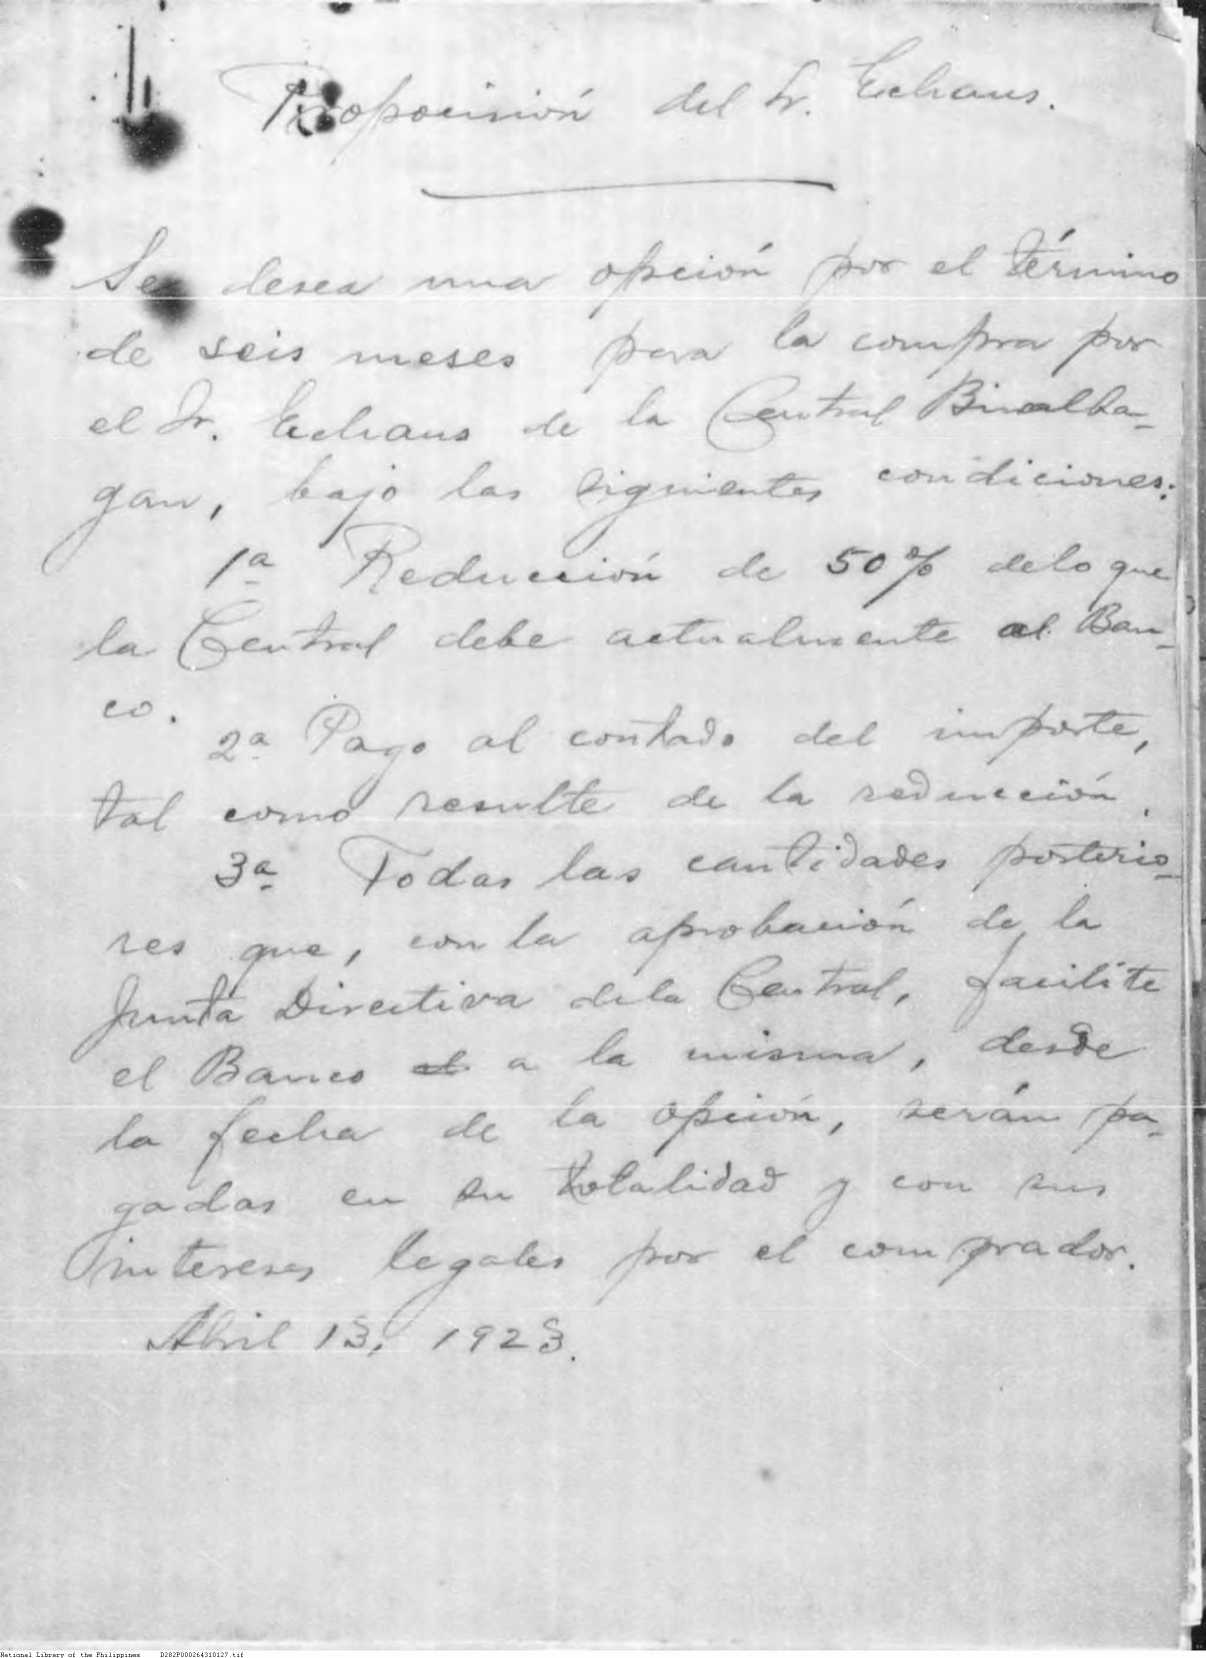 Propocisión del Sr. Echaus.
Se desea una opción por el término
de seis meses para la compra por
el Sr. Echaus de la Central Binalba-
gan, bajo las siguientes condiciones:
1ª Reducción de 50% de lo que
la Central debe actualmente al Ban-
co.
2ª Pago al contado del importe,
tal como resulte de la reducción.
3ª Todas las cantidades posterio-
res que, con la aprobación de la
Junta Directiva de la Central, facilite
el Banco a la misma, desde
la fecha de la opción, serán pa-
gadas en su totalidad y con sus
intereses legales por el comprador.
Abril 13, 1923.
National Library of the Philippines D282P000264310127.tif